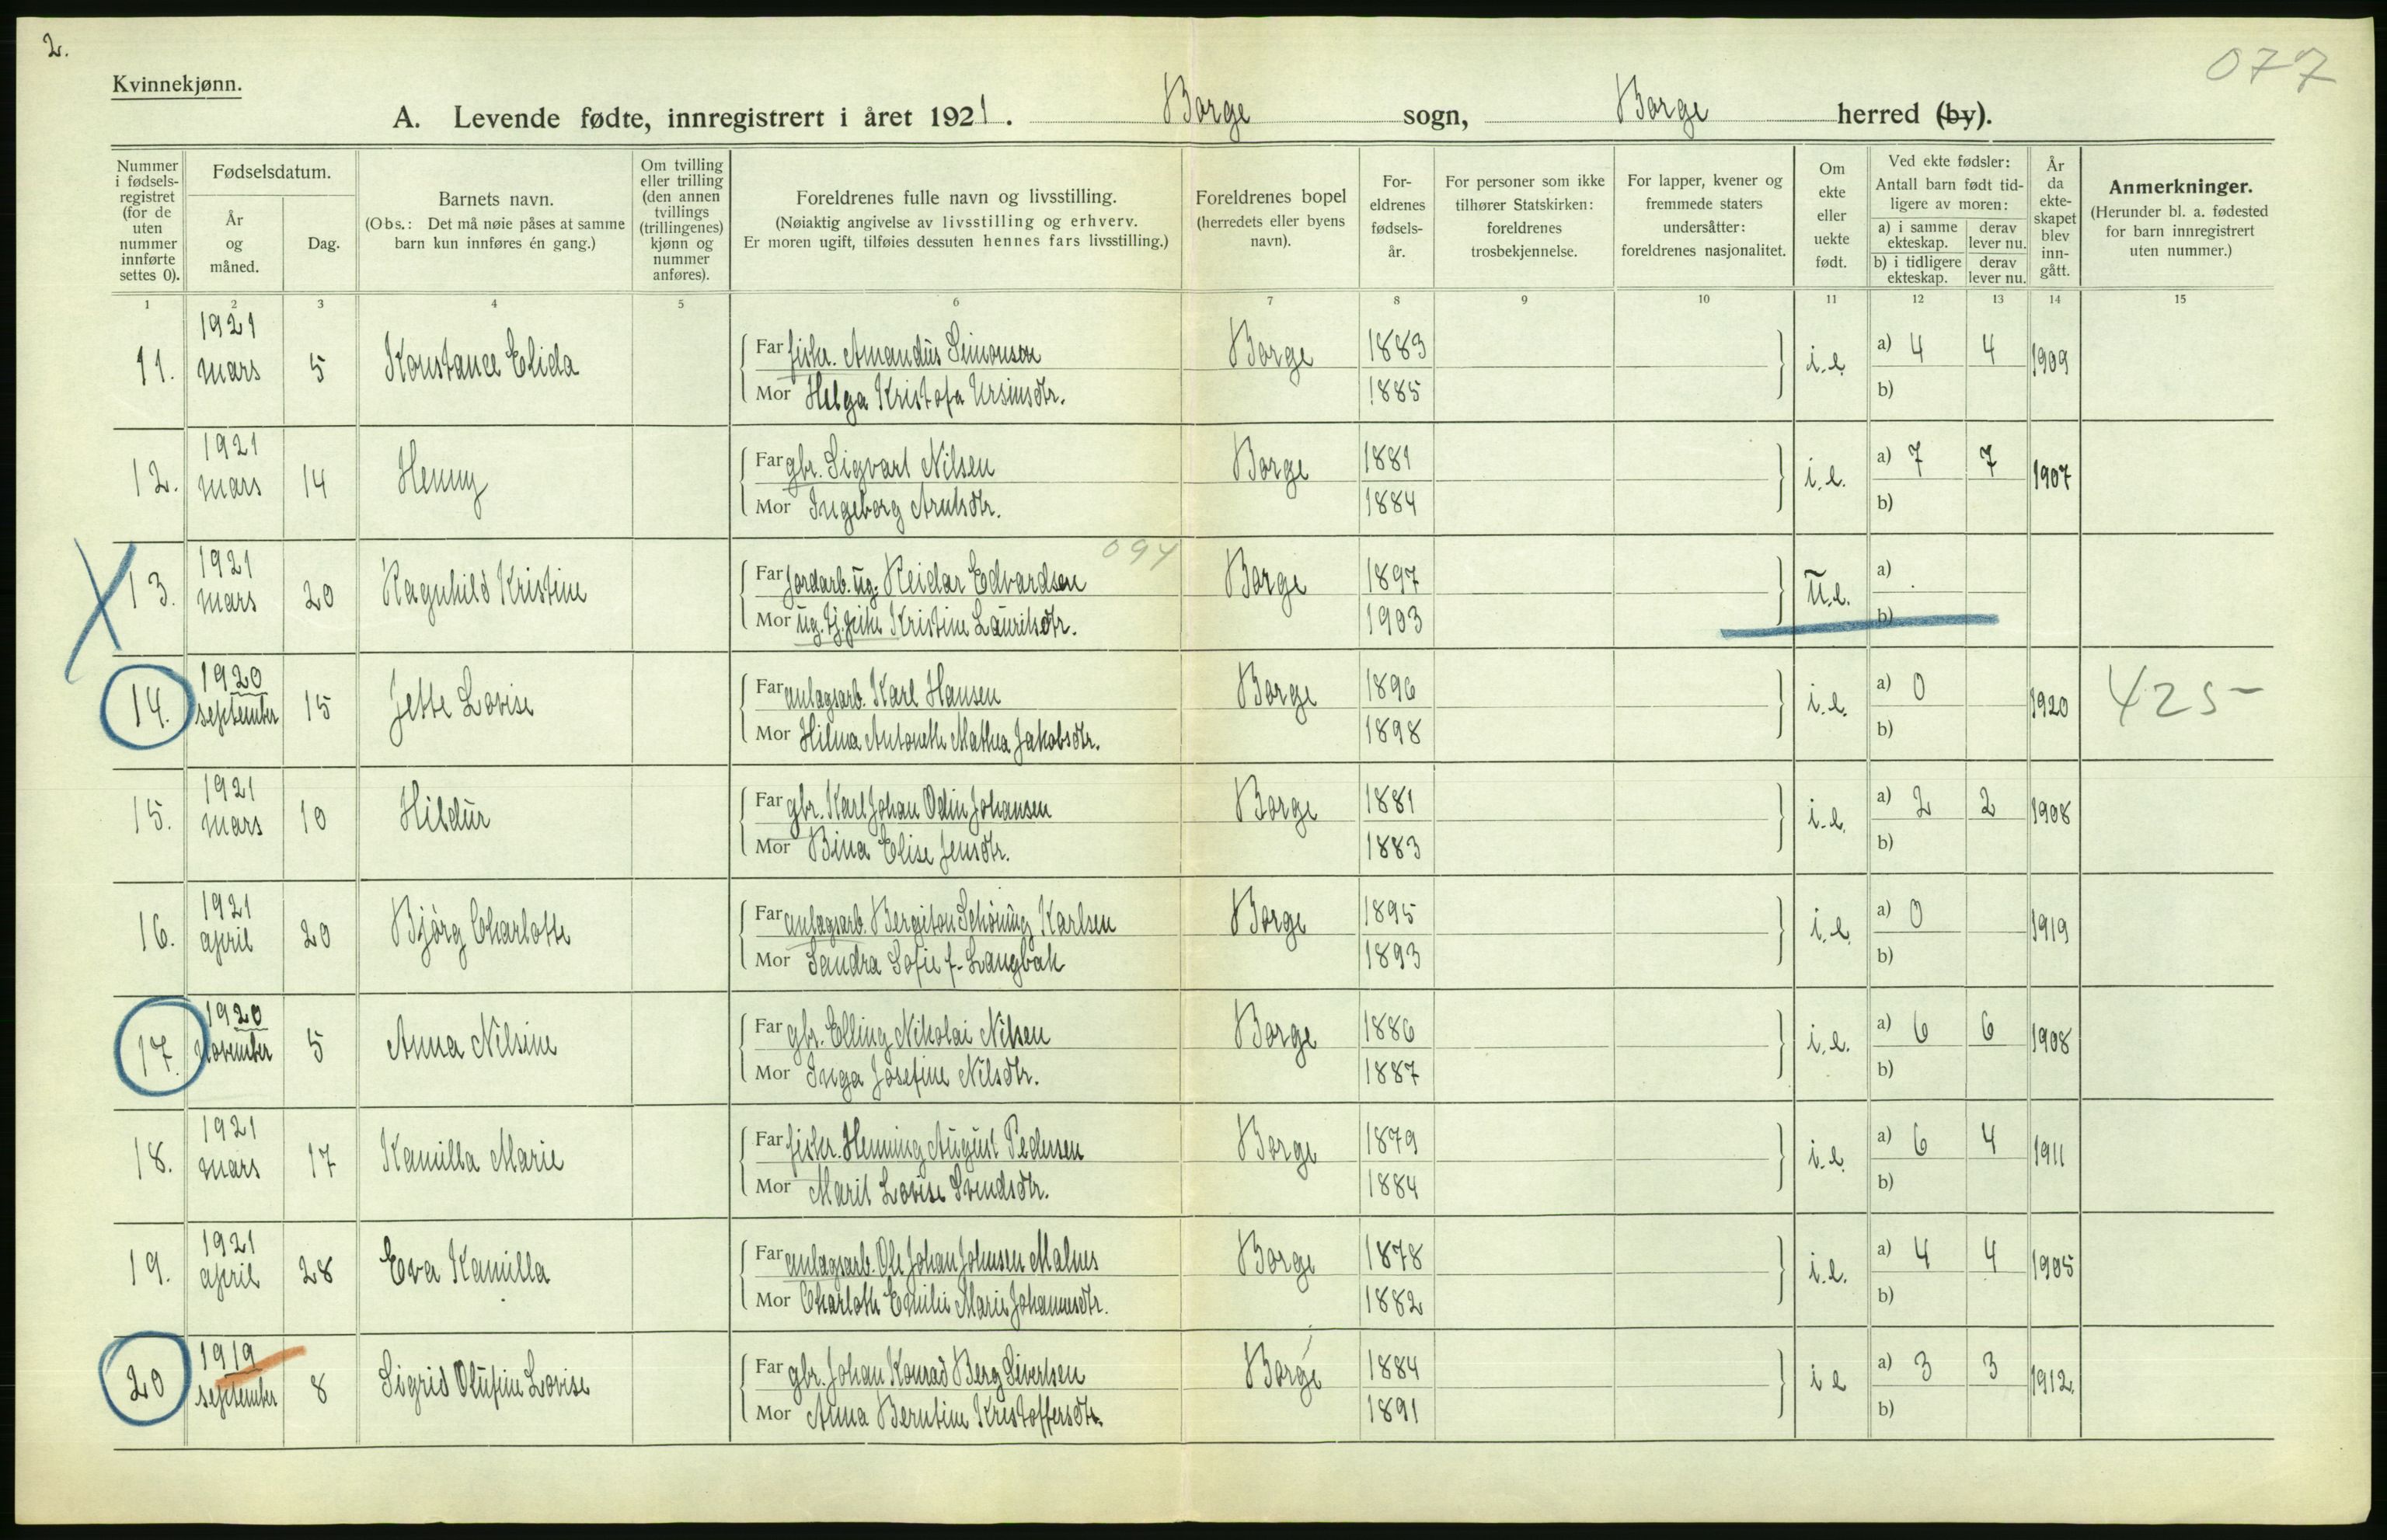 2.
077
Kvinnekjønn.
A. Levende fødte, innregistrert i året 1921. Borge sogn, Borge herred (by).
Nummer i fødsels-registret (for de uten nummer innførte settes 0).
Fødselsdatum.
År og måned.
Dag.
Barnets navn.
(Obs.: Det må nøie påses at samme barn kun innføres én gang.)
Om tvilling eller trilling (den annen tvillings (trillingenes) kjønn og nummer anføres).
Foreldrenes fulle navn og livsstilling.
(Nøiaktig angivelse av livsstilling og erhverv.
Er moren ugift, tilføies dessuten hennes fars livsstilling.)
Foreldrenes bopel
(herredets eller byens navn).
For-eldrenes fødsels-år.
For personer som ikke tilhører Statskirken: foreldrenes trosbekjennelse.
For lapper, kvener og fremmede staters undersåtter: foreldrenes nasjonalitet.
Om ekte eller uekte født.
Ved ekte fødsler:
Antall barn født tid-ligere av moren:
a) i samme ekteskap. derav lever nu.
b) i tidligere ekteskap. derav lever nu.
År da ekte-skapet blev inn-gått.
Anmerkninger.
(Herunder bl. a. fødested for barn innregistrert uten nummer.)
1 2 3 4 5 6 7 8 9 10 11 12 13 14 15
11. 1921 mars 5 Konstance Elida Far fisker. Amandus Simonsen Borge 1883 i.e. a) 4 4 1909
Mor Helga Kristofa Ursinsdtr. 1885 b)
12. 1921 mars 14 Henny Far gbr. Sigvart Nilsen Borge 1881 i.e. a) 7 7 1907
Mor Ingeborg Arntsdtr. 1884 b)
094
13. 1921 mars 20 Ragnhild Kristine Far jordarb. ug. Reidar Edvardsen Borge 1897 u.e. a)
Mor ug. tj. Kristine Lauritsdtr. 1903 b)
14. 1920 september 15 Jette Lovise Far anlagsarb. Karl Hansen Borge 1896 i.e. a) 0 1920 425-
Mor Hilma Antonette Mathea Jakobsdtr. 1898 b)
15. 1921 mars 10 Hildur Far gbr. Karl Johan Odin Johansen Borge 1881 i.e. a) 2 2 1908
Mor Bina Elise Jensdtr. 1883 b)
16. 1921 april 20 Bjørg Charlotte Far anlagsarb. Bergiton Schøning Karlsen Borge 1895 i.e. a) 0 1919
Mor Sandra Sofie f. Langbak 1893 b)
17. 1920 November 5 Anna Nilsine Far gbr. Elling Nikolai Nilsen Borge 1886 i.e. a) 6 6 1908
Mor Inga Josefine Nilsdtr. 1887 b)
18. 1921 mars 17 Kamilla Marie Far fisker. Henning August Pedersen Borge 1879 i.e. a) 6 4 1911
Mor Marit Lovise Svendsdtr. 1884 b)
19. 1921 april 28 Eva Kamilla Far anlagsarb. Ole Johan Johnsen Malnes Borge 1878 i.e. a) 4 4 1905
Mor Charlotte Emilie Marie Johannesdtr. 1882 b)
20 1919 september 8 Sigrid Olufine Lovise Far gbr. Johan Konrad Berg Sivertsen Borge 1884 i e a) 3 3 1912.
Mor Anna Berntine Kristoffersdtr. 1891 b)